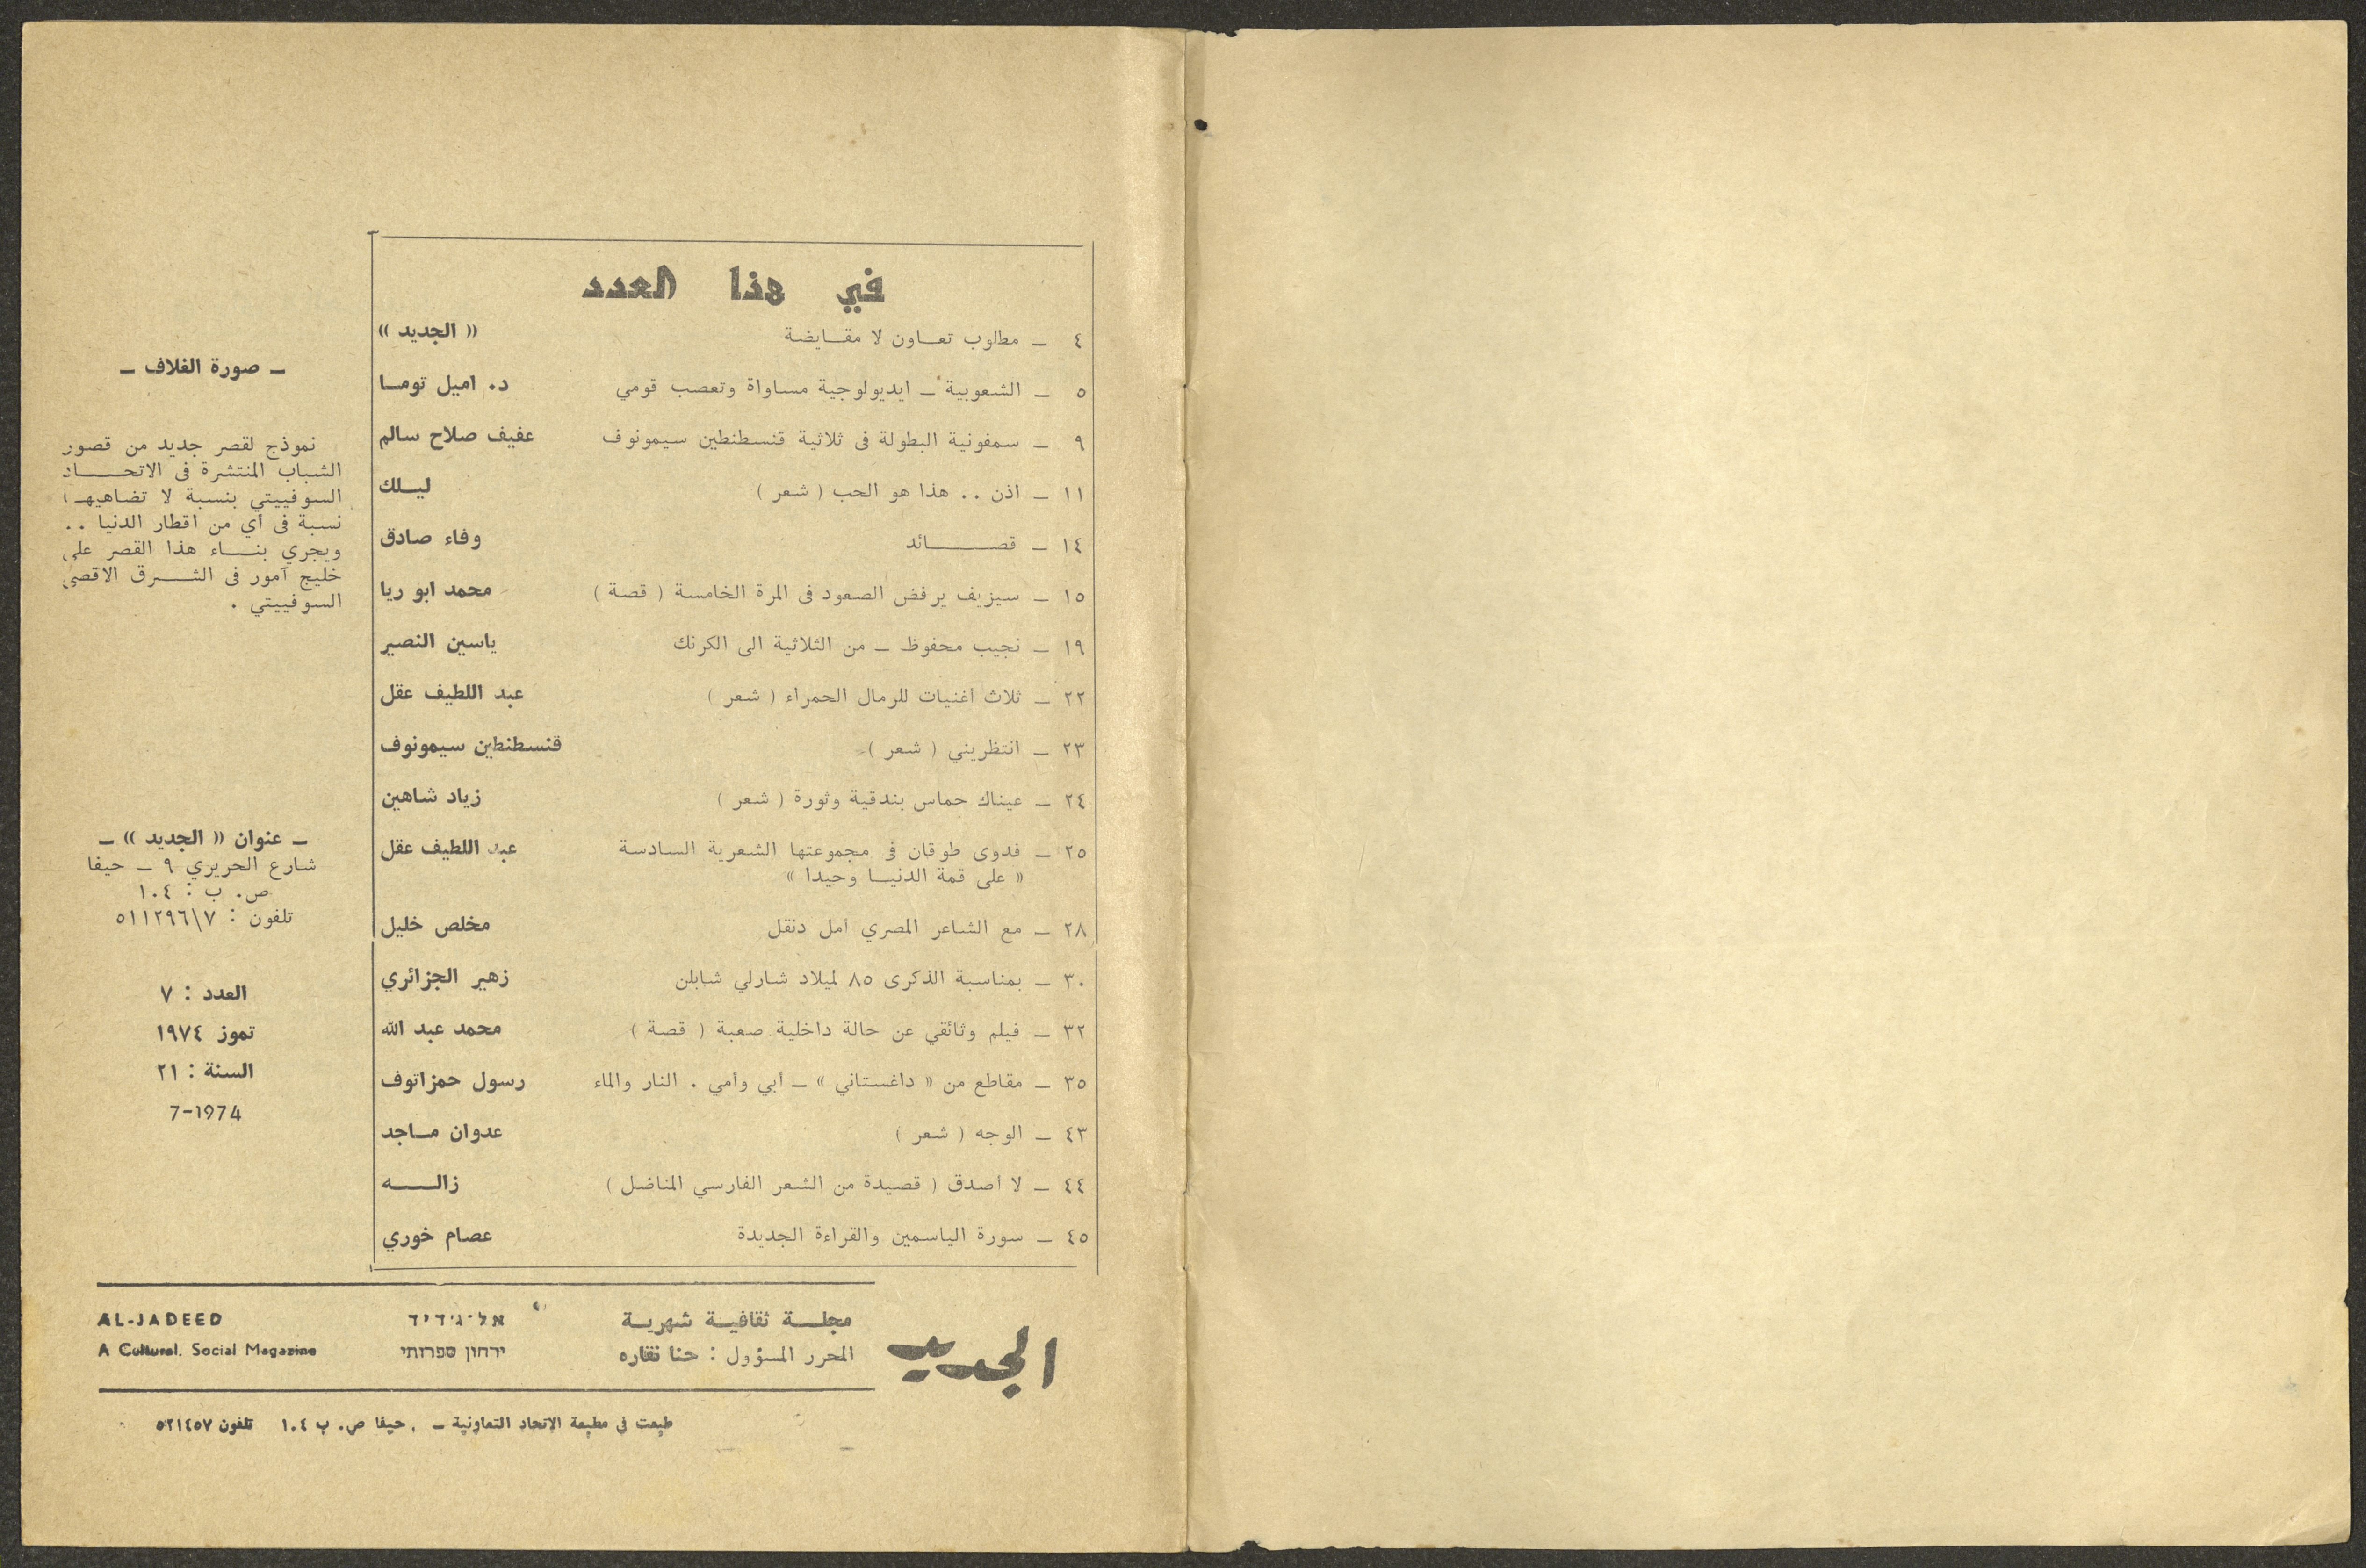 في هذا العدد
٤ ــ مطلوب تعـاون لا مقـايضة « الجديد »
٥ ــ الشعوبية ــ ايديولوجية مساواة وتعصب قومي د. اميل تومـا
٩ ــ سمفونية البطولة فى ثلاثية قنسطنطين سيمونوف عفيف صلاح سالم
١١ ــ اذن .. هذا هو الحب ( شعر ) ليـلك
١٤ ــ قصـــائد وفاء صادق
١٥ ــ سيزيف يرفض الصعود فى المرة الخامسة ( قصة ) محمد ابو ريا
١٩ ــ نجيب محفوظ ــ من الثلاثية الى الكرنك ياسين النصير
٢٢ ــ ثلاث اغنيات للرمال الحمراء ( شعر ) عبد اللطيف عقل
٢٣ ــ انتظريني ( شعر ) قنسطنطين سيمونوف
٢٤ ــ عيناك حماس بندقية وثورة ( شعر ) زياد شاهين
٢٥ ــ فدوى طوقان فى مجموعتها الشعرية السادسة عبد اللطيف عقل
« على قمة الدنيـا وحيدا »
٢٨ ــ مع الشاعر المصري امل دنقل مخلص خليل
٣٠ ــ بمناسبة الذكرى ٨٥ لميلاد شارلي شابلن زهير الجزائري
٣٢ ــ فيلم وثائقي عن حالة داخلية صعبة ( قصة ) محمد عبد الله
٣٥ ــ مقاطع من « داغستاني » ــ ابي وامي . النار والماء رسول حمزاتوف
٤٣ ــ الوجه ( شعر ) عدوان مـاجد
٤٤ ــ لا اصدق ( قصيدة من الشعر الفارسي المناضل ) زالـــه
٤٥ ــ سورة الياسمين والقراءة الجديدة عصام خوري
ــ صورة الغلاف ــ
نموذج لقصر جديد من قصور
الشباب المنتشرة فى الاتحـــاد
السوفييتي بنسبة لا تضاهيهـا
نسبة فى اي من اقطار الدنيا ..
ويجري بنـــاء هذا القصر على
خليج آمور فى الشـــرق الاقصى
السوفييتي .
ــ عنوان « الجديد » ــ
شارع الحريري ٩ ــ حيفا
ص. ب : ١٠٤
تلفون : ٥١١٢٩٦\٧
العدد : ٧
تموز ١٩٧٤
السنة : ٢١
7-1974
الجديد
مجلـة ثقافيـة شهريـة
المحرر المسؤول : حنا نقاره
אל־ג׳דיד
ירחון ספרותי
AL-JADEED
A Cultural, Social Magazine
طبعت في مطبعة الاتحاد التعاونية ــ حيفا ص. ب ١٠٤ تلفون ٥٢١٤٥٧